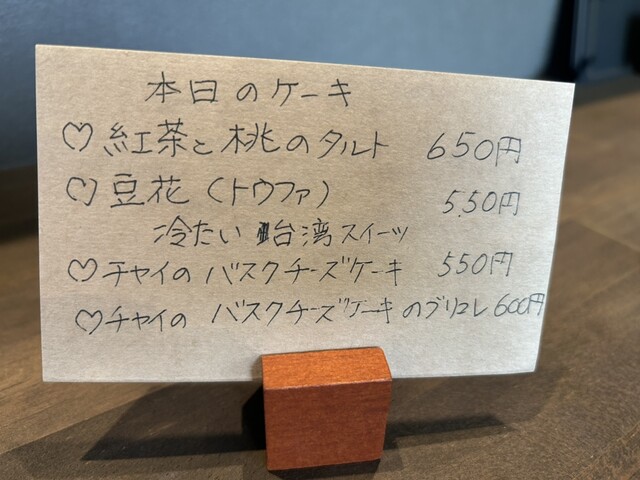 本日のケーキ
♡紅茶と桃のタルト 650円
♡豆花(トウファ) 550円
冷たい 台湾スイーツ
♡チャイのバスクチーズケーキ 550円
♡チャイの バスクチーズケーキのブリュレ 600円